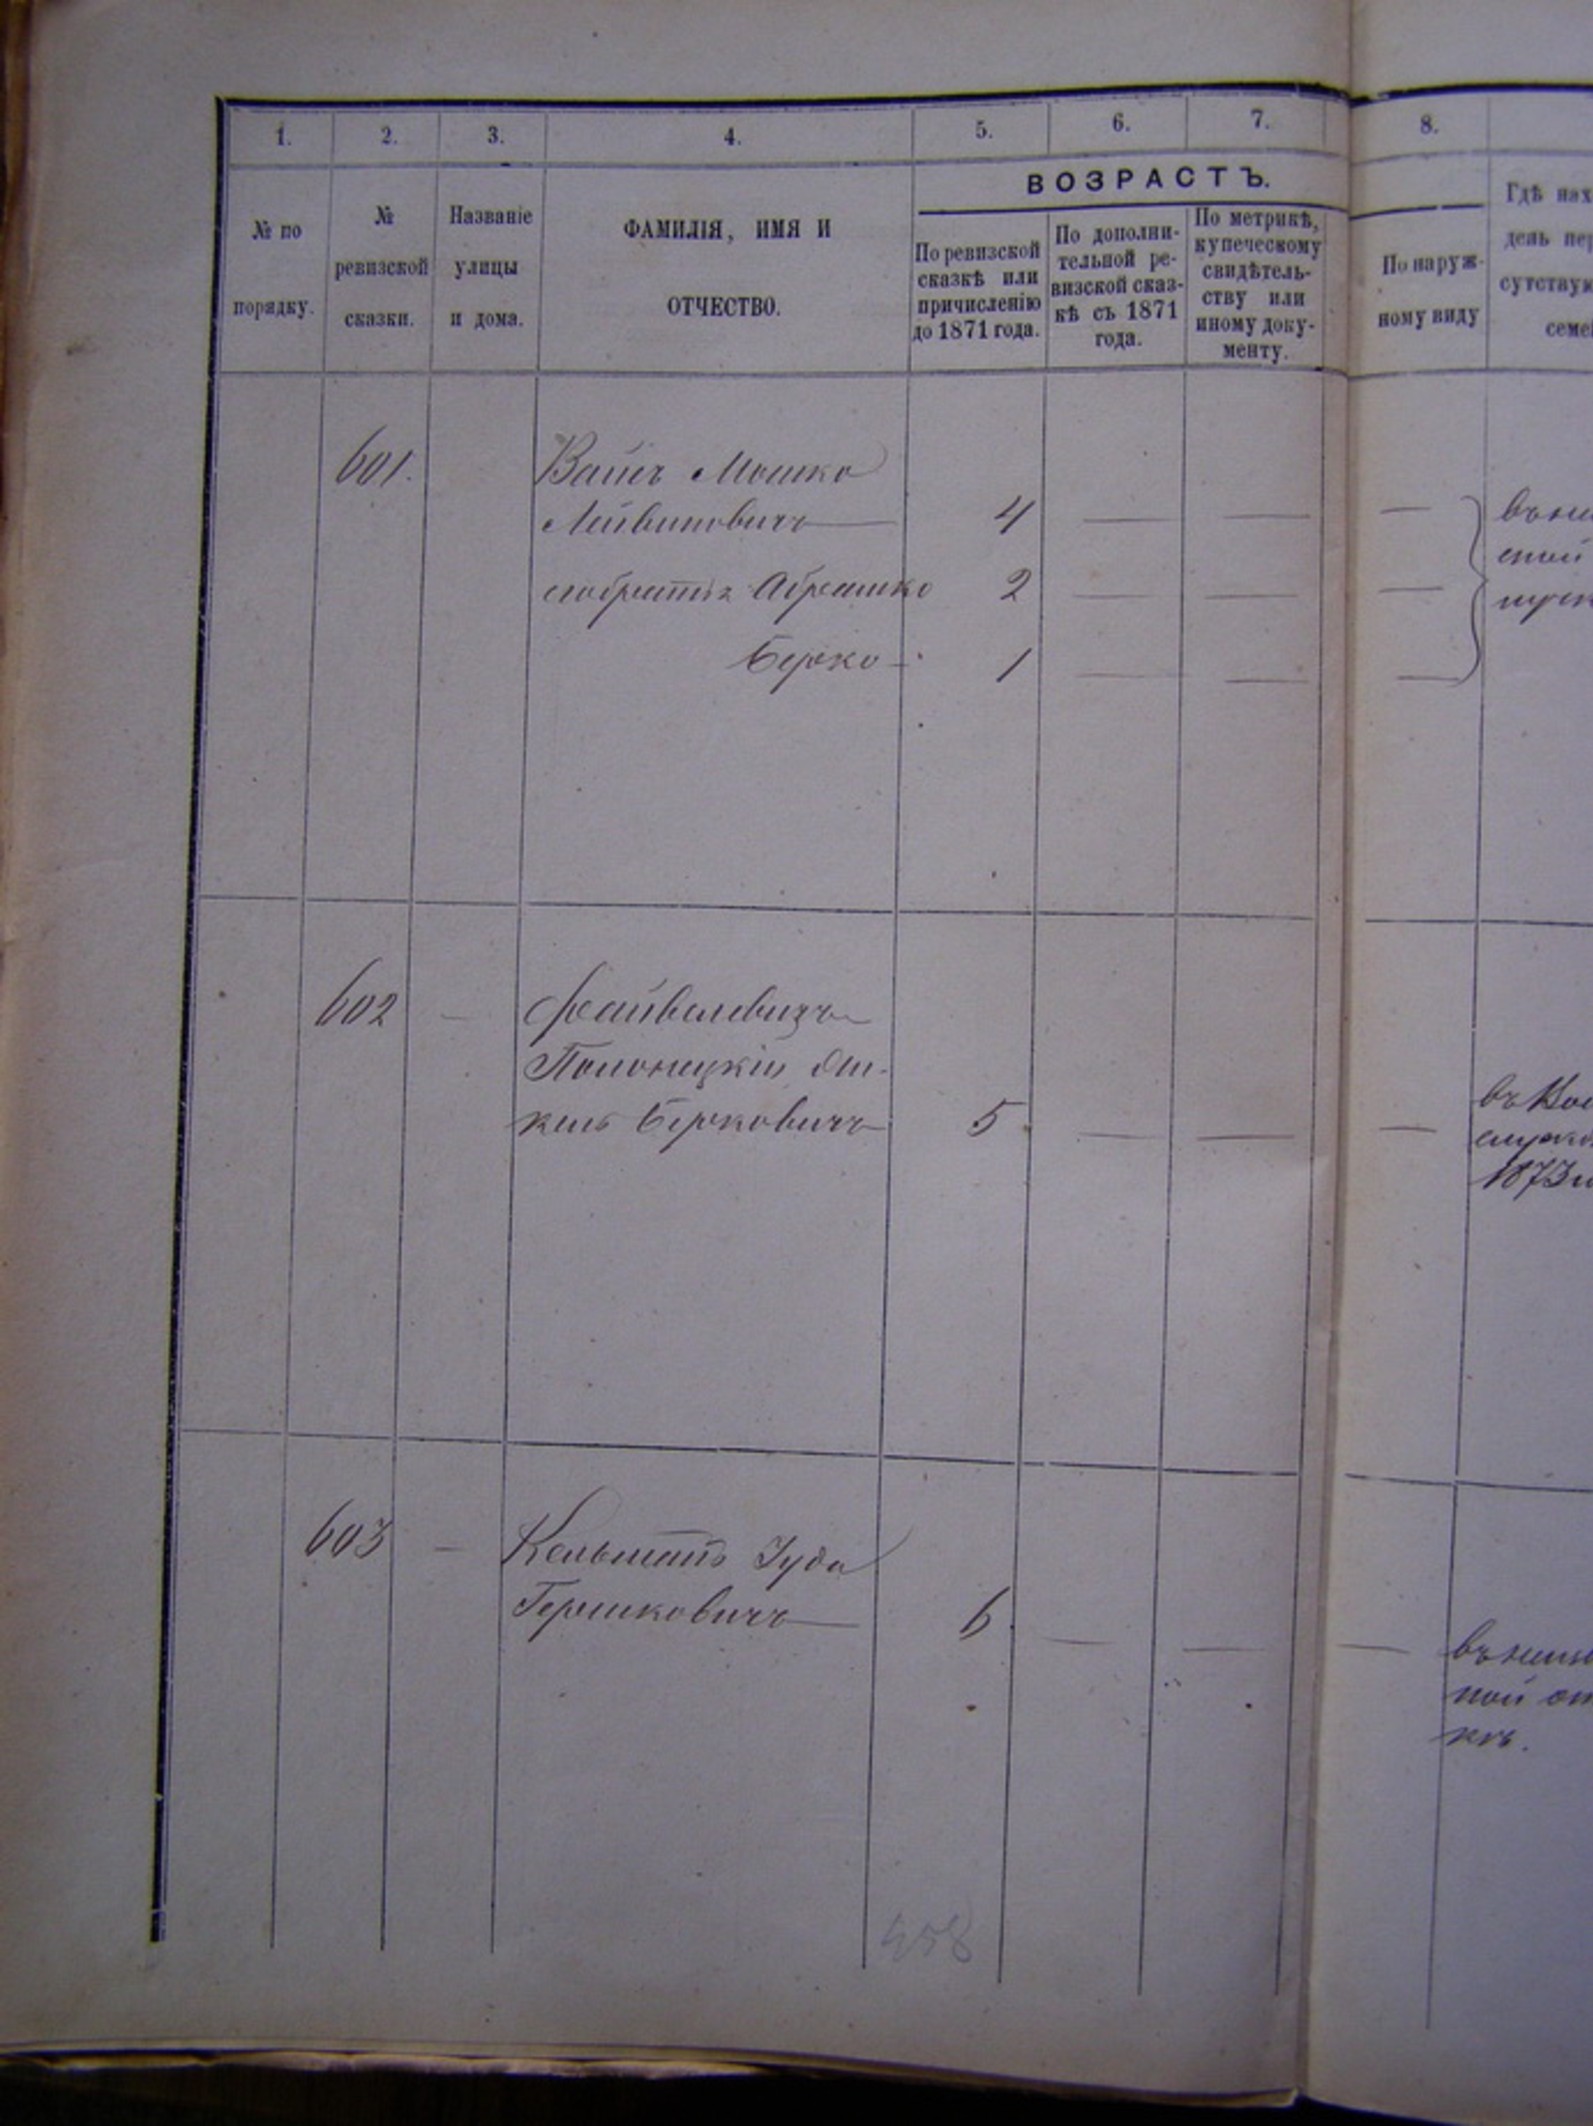 1. 2. 3. 4. 5. 6. 7. 8.
ВОЗРАСТЪ.
№ по
порядку.
№
ревизской
сказки.
Названіе
улицы
и дома.
ФАМИЛІЯ, ИМЯ И
ОТЧЕСТВО.
По ревизской
сказкѣ или
причисленію
до 1871 года.
По дополни-
тельной ре-
визской сказ-
кѣ съ 1871
года.
По метрикѣ,
купеческому
свидѣтель-
ству или
иному доку-
менту.
По наруж-
ному виду
Гдѣ нах
день пер
сутствую
семе
601. Мошко
Лейвиковичъ — 4 — — —
Абрашко 2 — — —
Берко — 1 — — —
602 — Файвелевичъ
Полонецкій
кель Берковичъ 5 — — —
въ
1873
603 — Кельманъ Іуда
Гершковичъ — 6 — — —
ной от
кѣ.
458